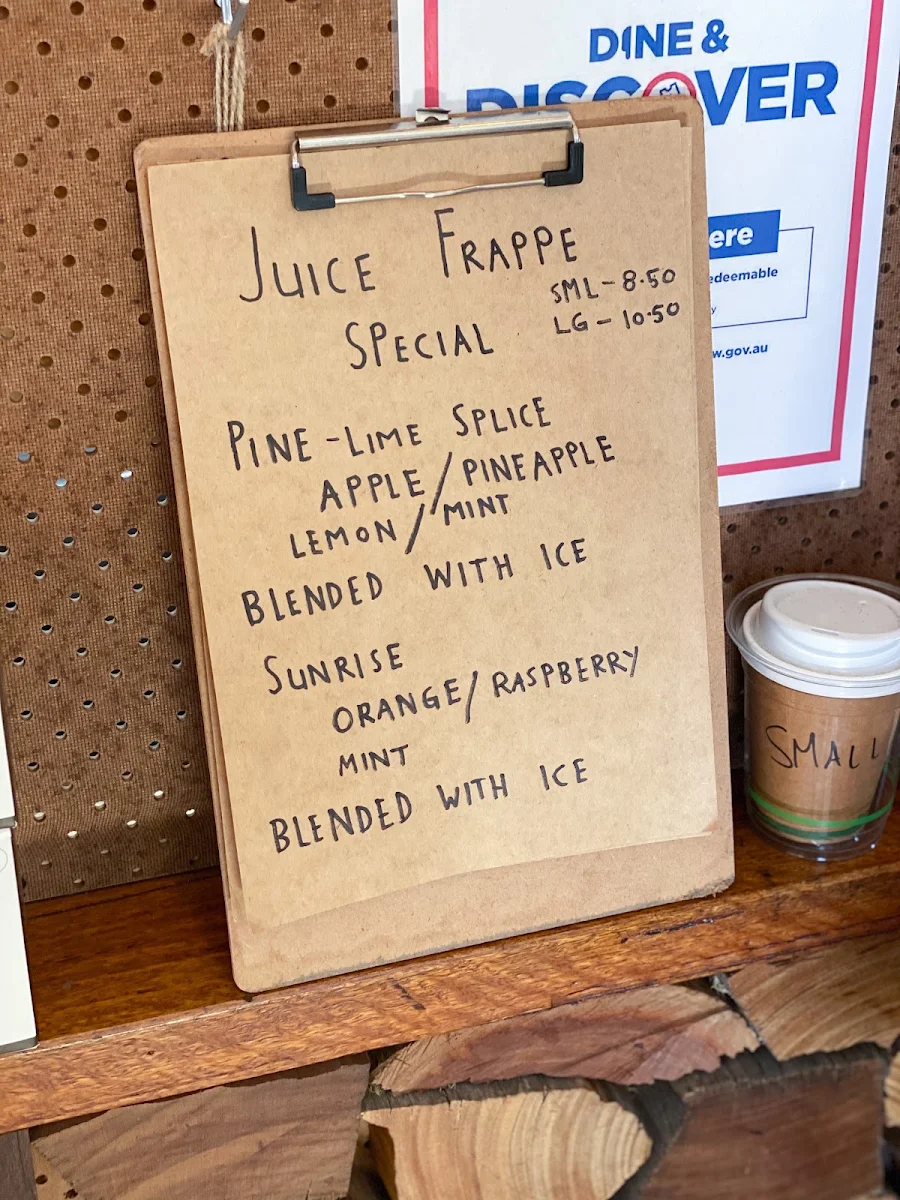 DINE &
DISCOVER
ere
edeemable
y
w.gov.au
JUICE FRAPPE
SML - 8.50
LG - 10.50
SPECIAL
PINE-LIME SPLICE
APPLE/PINEAPPLE
LEMON/MINT
BLENDED WITH ICE
SUNRISE
ORANGE/RASPBERRY
MINT
BLENDED WITH ICE
SMALL